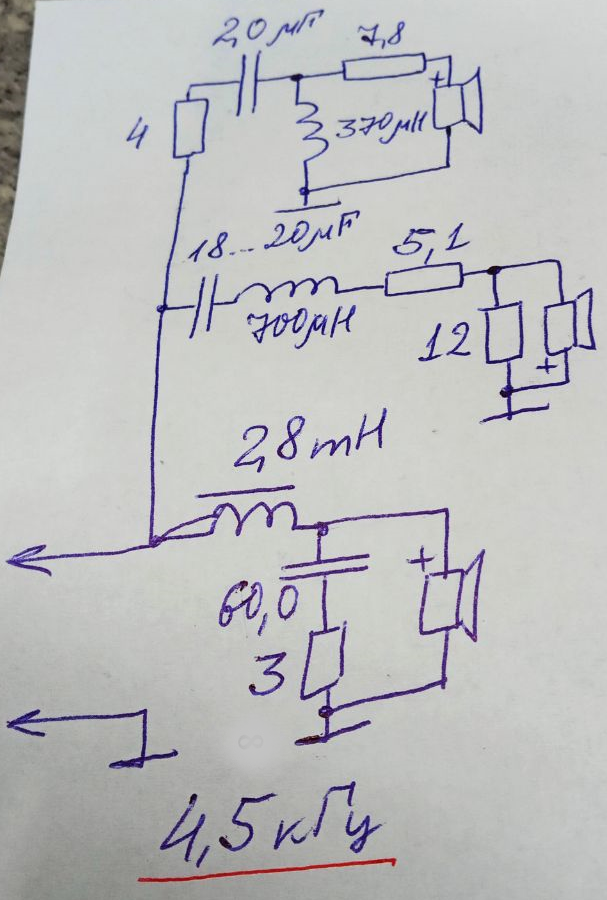 2,0 мF
7,8
+
4
370 мH
18...20 мF
5,1
700 мH
12
+
2,8 mH
+
60,0
3
4,5 кГц